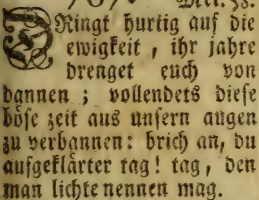 DRingt hurtig auf die
ewigkeit, ihr jahre
drenget euch von
dannen; vollendets diese
böse zeit aus unsern augen
zu verbannen: brich an, du
aufgeklärter tag! tag, den
man lichte nennen mag.